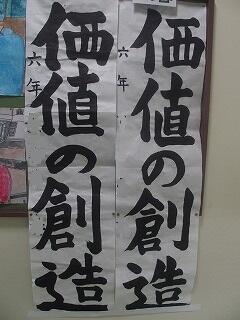 価値の創造
六年
価値の創造
六年